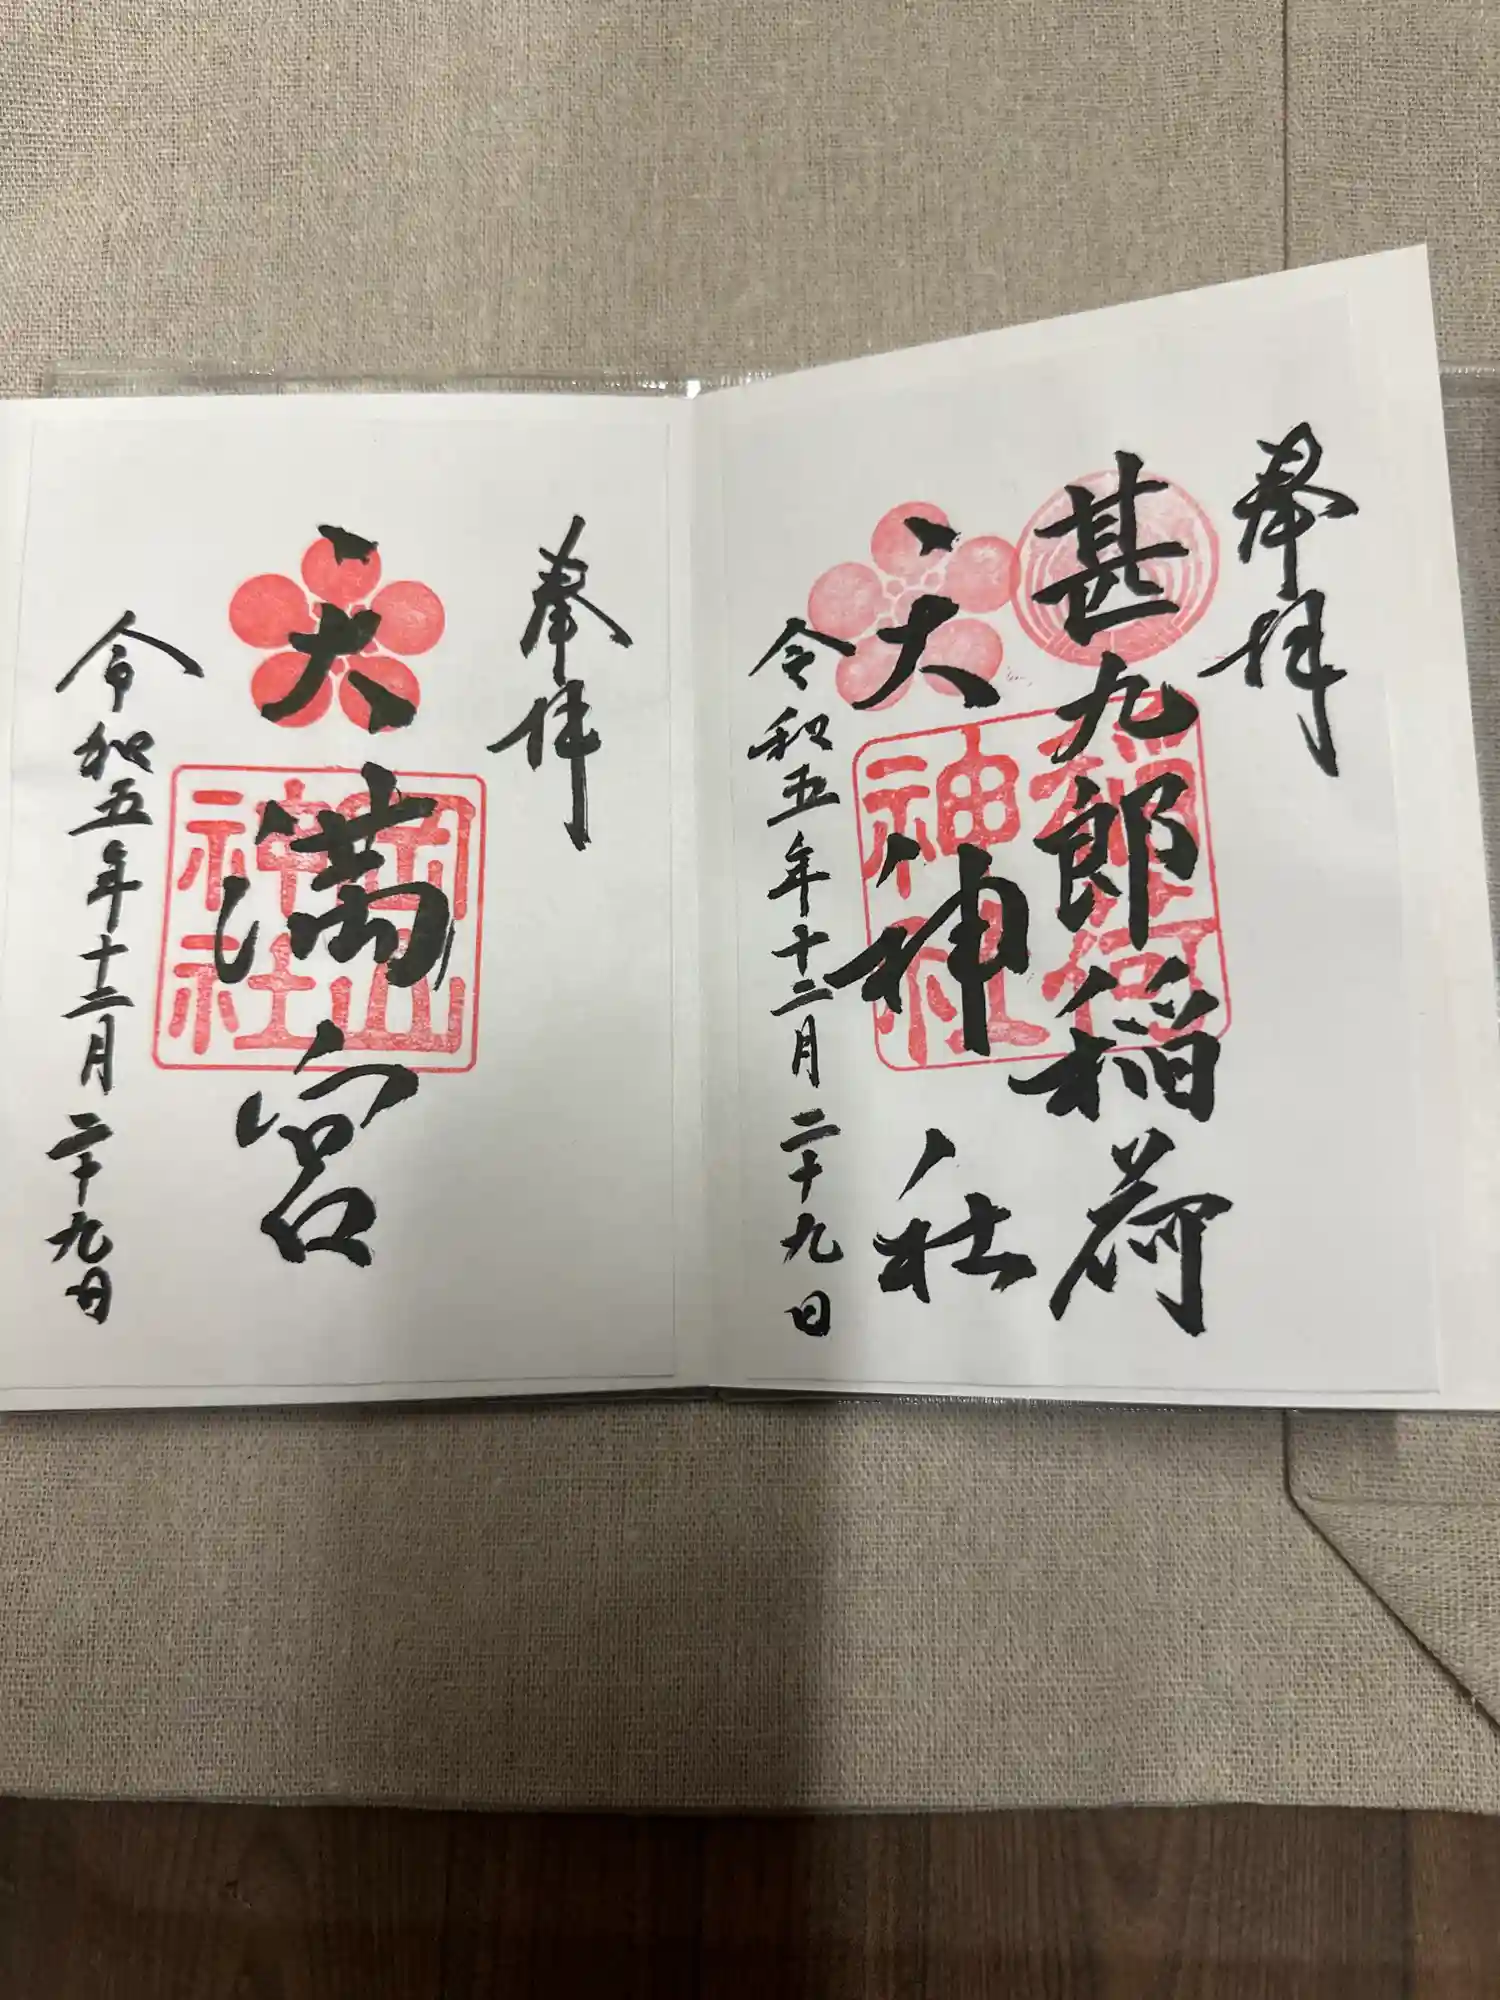 奉拝
甚九郎稲荷
天神社
稲荷
神社
令和五年十二月二十九日
奉拝
天満宮
岡山
神社
令和五年十二月二十九日